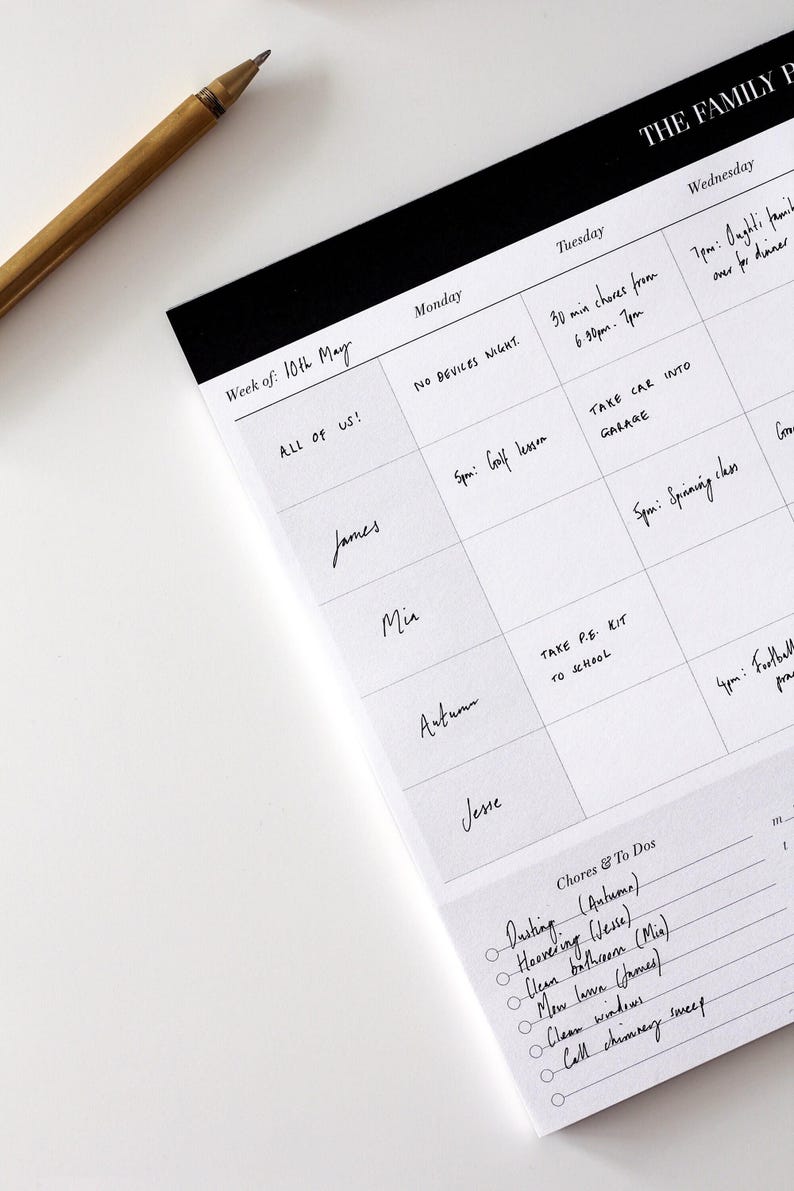 THE FAMILY P
Monday
Tuesday
Wednesday
Week of: 10th May
ALL OF US!
NO DEVICES NIGHT.
30 min chores from
6.30pm - 7pm
7pm: famil
over for dinner
James
5pm: Golf lesson
TAKE CAR INTO
GARAGE
Mia
5pm: Spinning class
Gro
Autumn
TAKE P.E. KIT
TO SCHOOL
Jesse
4pm: Football
prac
Chores & To Dos
Dusting (Autumn)
Hoovering (Jesse)
Clean bathroom (Mia)
Mow lawn (James)
Clean windows
Call chimney sweep
m
t